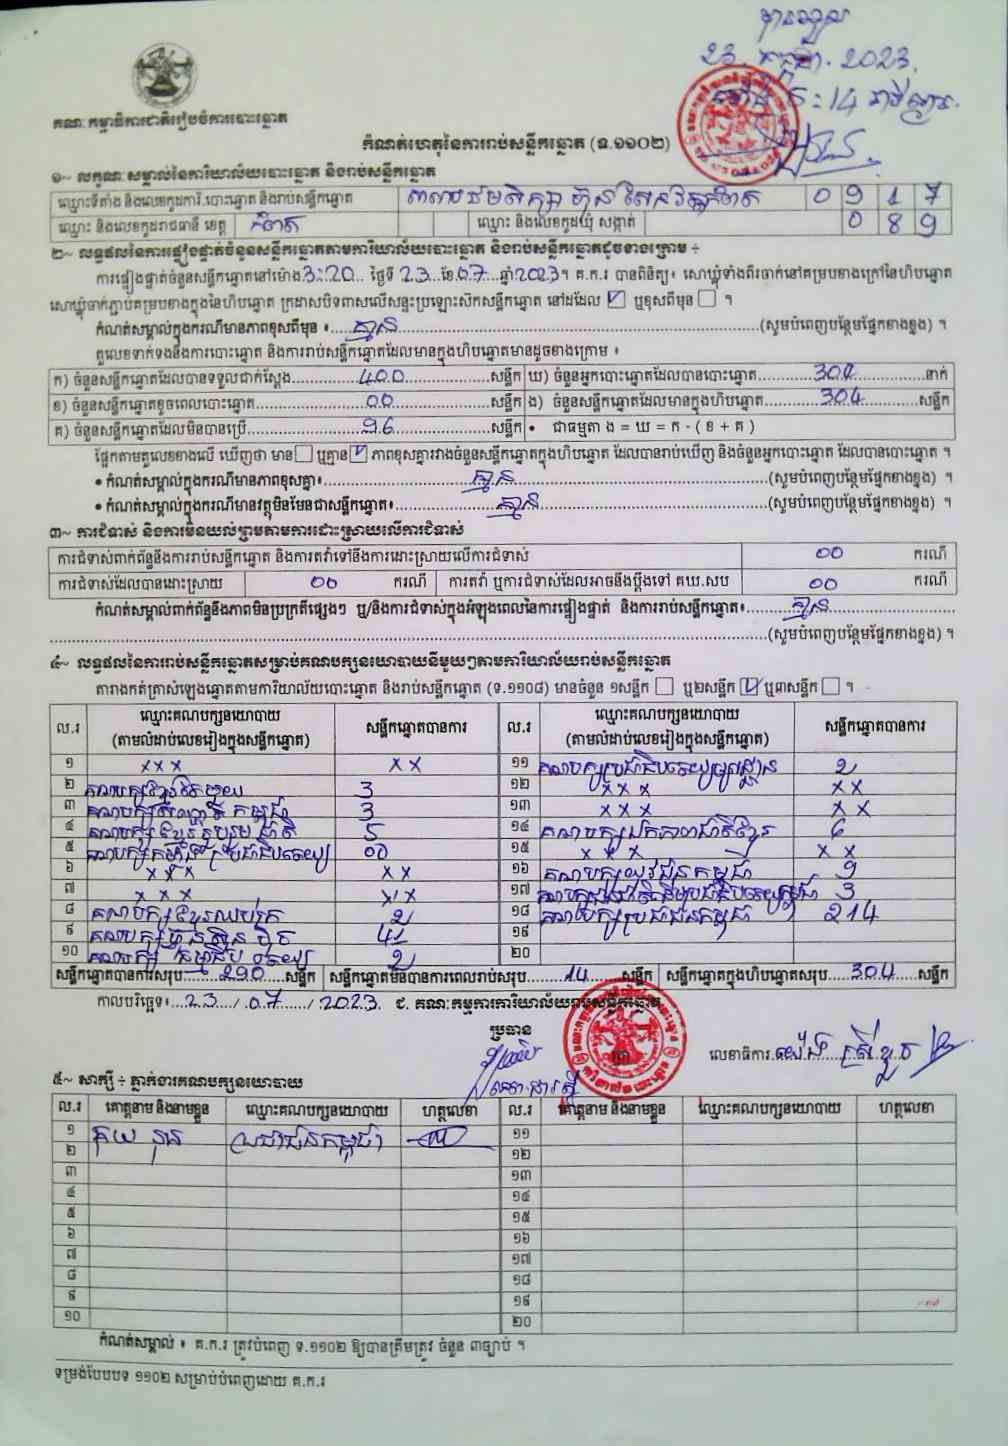 បានឃើញ
23. កក្កដា. 2023.
គណៈកម្មាធិការជាតិរៀបចំការបោះឆ្នោត
កំណត់ហេតុនៃការរាប់សន្លឹកឆ្នោត (ទ.១១០២)
១~ លក្ខណៈសម្គាល់នៃការិយាល័យបោះឆ្នោត និងរាប់សន្លឹកឆ្នោត
ឈ្មោះទីតាំង និងលេខកូដការិ.បោះឆ្នោត និងរាប់សន្លឹកឆ្នោត 0 9 1 7
ឈ្មោះ និងលេខកូដរាជធានី ខេត្ត កំពត ឈ្មោះ និងលេខកូដឃុំ សង្កាត់ 0 8 9
២~ លទ្ធផលនៃការផ្ទៀងផ្ទាត់ចំនួនសន្លឹកឆ្នោតតាមការិយាល័យបោះឆ្នោត និងរាប់សន្លឹកឆ្នោតដូចខាងក្រោម ÷
ការផ្ទៀងផ្ទាត់ចំនួនសន្លឹកឆ្នោតនៅម៉ោង 3:20 ថ្ងៃទី 23 ខែ 07 ឆ្នាំ 2023 ។ គ.ក.រ បានពិនិត្យ៖ សោឃ្លុំទាំងពីរចាក់នៅគម្របខាងក្រៅនៃហិបឆ្នោត
សោឃ្លុំចាក់ភ្ជាប់គម្របខាងក្នុងនៃហិបឆ្នោត ក្រដាសបិទពាសលើសន្ទះប្រឡោះសិកសន្លឹកឆ្នោត នៅដដែល ☑ ឬខុសពីមុន ☐ ។
កំណត់សម្គាល់ក្នុងករណីមានភាពខុសពីមុន ៖ គ្មាន (សូមបំពេញបន្ថែមផ្នែកខាងខ្នង) ។
តួលេខទាក់ទងនឹងការបោះឆ្នោត និងការរាប់សន្លឹកឆ្នោតដែលមានក្នុងហិបឆ្នោតមានដូចខាងក្រោម ៖
ក) ចំនួនសន្លឹកឆ្នោតដែលបានទទួលជាក់ស្តែង 400 សន្លឹក ឃ) ចំនួនអ្នកបោះឆ្នោតដែលបានបោះឆ្នោត 304 នាក់
ខ) ចំនួនសន្លឹកឆ្នោតខូចពេលបោះឆ្នោត 00 សន្លឹក ង) ចំនួនសន្លឹកឆ្នោតដែលមានក្នុងហិបឆ្នោត 304 សន្លឹក
គ) ចំនួនសន្លឹកឆ្នោតដែលមិនបានប្រើ 96 សន្លឹក • ជាធម្មតា ង = ឃ = ក - ( ខ + គ )
ផ្អែកតាមតួលេខខាងលើ ឃើញថា មាន ☐ ឬគ្មាន ☑ ភាពខុសគ្នារវាងចំនួនសន្លឹកឆ្នោតក្នុងហិបឆ្នោត ដែលបានរាប់ឃើញ និងចំនួនអ្នកបោះឆ្នោត ដែលបានបោះឆ្នោត ។
• កំណត់សម្គាល់ក្នុងករណីមានភាពខុសគ្នា៖ គ្មាន (សូមបំពេញបន្ថែមផ្នែកខាងខ្នង) ។
• កំណត់សម្គាល់ក្នុងករណីមានវត្ថុមិនមែនជាសន្លឹកឆ្នោត៖ គ្មាន (សូមបំពេញបន្ថែមផ្នែកខាងខ្នង) ។
៣~ ការជំទាស់ និងការមិនយល់ព្រមតាមការដោះស្រាយលើការជំទាស់
ការជំទាស់ពាក់ព័ន្ធនឹងការរាប់សន្លឹកឆ្នោត និងការតវ៉ាទៅនឹងការដោះស្រាយលើការជំទាស់ 00 ករណី
ការជំទាស់ដែលបានដោះស្រាយ 00 ករណី ការតវ៉ា ឬការជំទាស់ដែលអាចនឹងប្តឹងទៅ គឃ.សប 00 ករណី
កំណត់សម្គាល់ពាក់ព័ន្ធនឹងភាពមិនប្រក្រតីផ្សេងៗ ឬ/និងការជំទាស់ក្នុងអំឡុងពេលនៃការផ្ទៀងផ្ទាត់ និងការរាប់សន្លឹកឆ្នោត៖ គ្មាន
(សូមបំពេញបន្ថែមផ្នែកខាងខ្នង) ។
៤~ លទ្ធផលនៃការរាប់សន្លឹកឆ្នោតសម្រាប់គណបក្សនយោបាយនីមួយៗតាមការិយាល័យរាប់សន្លឹកឆ្នោត
តារាងកត់ត្រាសំឡេងឆ្នោតតាមការិយាល័យបោះឆ្នោត និងរាប់សន្លឹកឆ្នោត (ទ.១១០៨) មានចំនួន ១សន្លឹក ☐ ឬ២សន្លឹក ☑ ឬ៣សន្លឹក ☐ ។
ល.រ ឈ្មោះគណបក្សនយោបាយ (តាមលំដាប់លេខរៀងក្នុងសន្លឹកឆ្នោត) សន្លឹកឆ្នោតបានការ ល.រ ឈ្មោះគណបក្សនយោបាយ (តាមលំដាប់លេខរៀងក្នុងសន្លឹកឆ្នោត) សន្លឹកឆ្នោតបានការ
១ x x x x x ១១ គណបក្សប្រជាធិបតេយ្យមូលដ្ឋាន 2
២ គណបក្សខ្មែរតែមួយ 3 ១២ x x x x x
៣ 3 ១៣ x x x x x
៤ គណបក្សខ្មែររួបរួមជាតិ 5 ១៤ គណបក្សឯកភាពជាតិខ្មែរ 6
៥ គណបក្សកម្លាំងប្រជាធិបតេយ្យ 00 ១៥ x x x x x
៦ x x x x x ១៦ គណបក្សយុវជនកម្ពុជា 9
៧ x x x x x ១៧ 3
៨ គណបក្សខ្មែរឈប់ក្រ 2 ១៨ គណបក្សប្រជាជនកម្ពុជា 214
៩ គណបក្សហ៊្វុនស៊ិនប៉ិច 41 ១៩
១០ 2 ២០
សន្លឹកឆ្នោតបានការសរុប 290 សន្លឹក សន្លឹកឆ្នោតមិនបានការពេលរាប់សរុប 14 សន្លឹក សន្លឹកឆ្នោតក្នុងហិបឆ្នោតសរុប 304 សន្លឹក
កាលបរិច្ឆេទ៖ 23 / 07 / 2023 ជ. គណៈកម្មការការិយាល័យរាប់សន្លឹកឆ្នោត
ប្រធាន
លេខាធិការ
៥~ សាក្សី ÷ ភ្នាក់ងារគណបក្សនយោបាយ
ល.រ គោត្តនាម និងនាមខ្លួន ឈ្មោះគណបក្សនយោបាយ ហត្ថលេខា ល.រ គោត្តនាម និងនាមខ្លួន ឈ្មោះគណបក្សនយោបាយ ហត្ថលេខា
១ ប្រជាជនកម្ពុជា ១១
២ ១២
៣ ១៣
៤ ១៤
៥ ១៥
៦ ១៦
៧ ១៧
៨ ១៨
៩ ១៩
១០ ២០
កំណត់សម្គាល់ ៖ គ.ក.រ ត្រូវបំពេញ ទ.១១០២ ឱ្យបានត្រឹមត្រូវ ចំនួន ៣ច្បាប់ ។
ទម្រង់បែបបទ ១១០២ សម្រាប់បំពេញដោយ គ.ក.រ